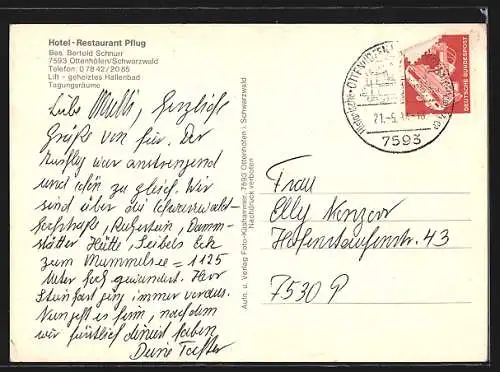 Hotel-Restaurant Pflug
Bes. Bertold Schnurr
7593 Ottenhöfen/Schwarzwald
Telefon: 0 78 42 / 20 85
Lift - geheiztes Hallenbad
Tagungsräume
Liebe Mutti, herzliche
Grüße von hier. Der
Ausflug war anstrengend
und schön zu gleich. Wir
sind über die Schwarzwald-
hochstraße, Ruhestein, Darm-
städter Hütte, Seibels Eck
zum Mummelsee = 1125
Meter hoch gewandert. Herr
ging immer voraus.
Nun geht es heim, nachdem
wir fürstlich diniert haben
Deine Tochter
Aufn. u. Verlag Foto-Küshammer, 7593 Ottenhöfen i. Schwarzwald
Nachdruck verboten
OTTENHÖFEN
7593
DEUTSCHE BUNDESPOST
Frau
Elly
Hohenstaufenstr. 43
7530 P